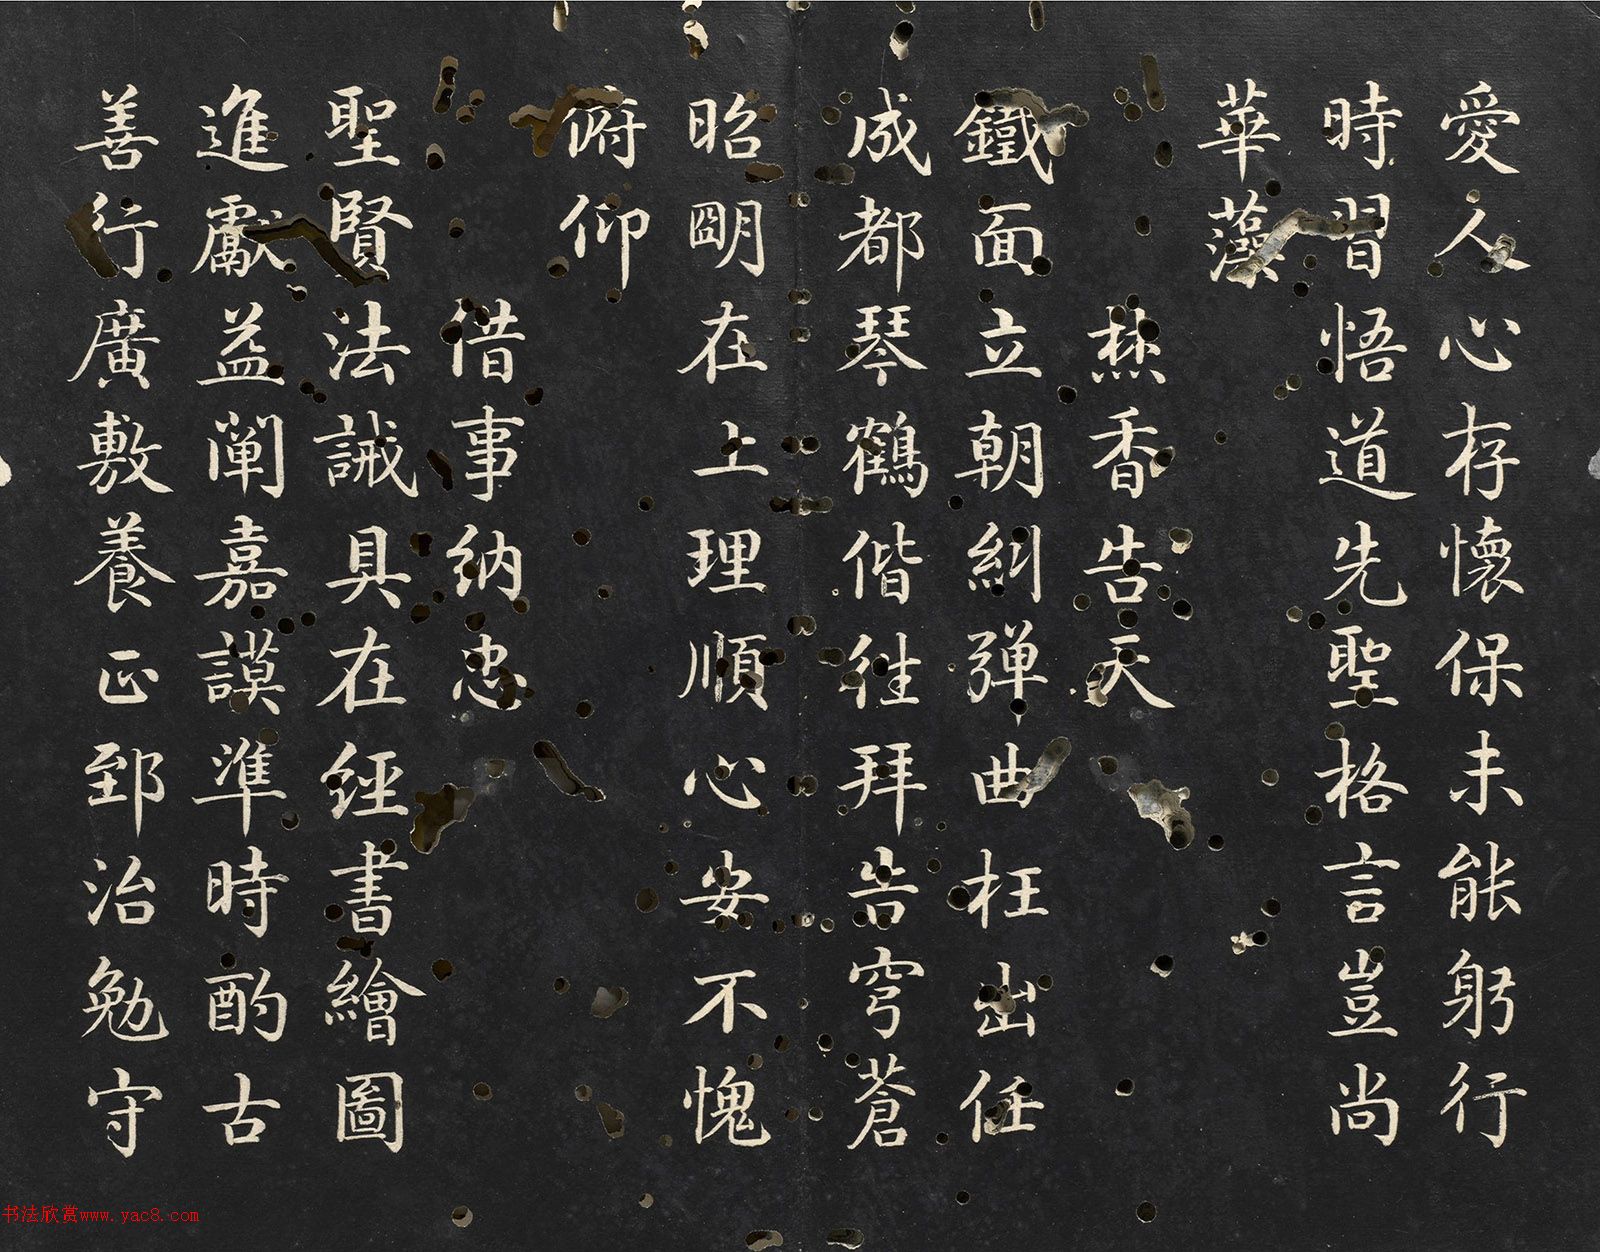 愛人心存懷保未能躬行
時習悟道先聖格言豈尚
華藻
焚香告天
鐵面立朝糾彈曲枉出任
成都琴鶴偕往拜告穹蒼
昭朙在上理順心安不愧
俯仰
借事納忠
聖賢法誡具在經書繪圖
進獻益闡嘉謨準時酌古
善行廣敷養正郅治勉守
书法欣赏www.yac8.com